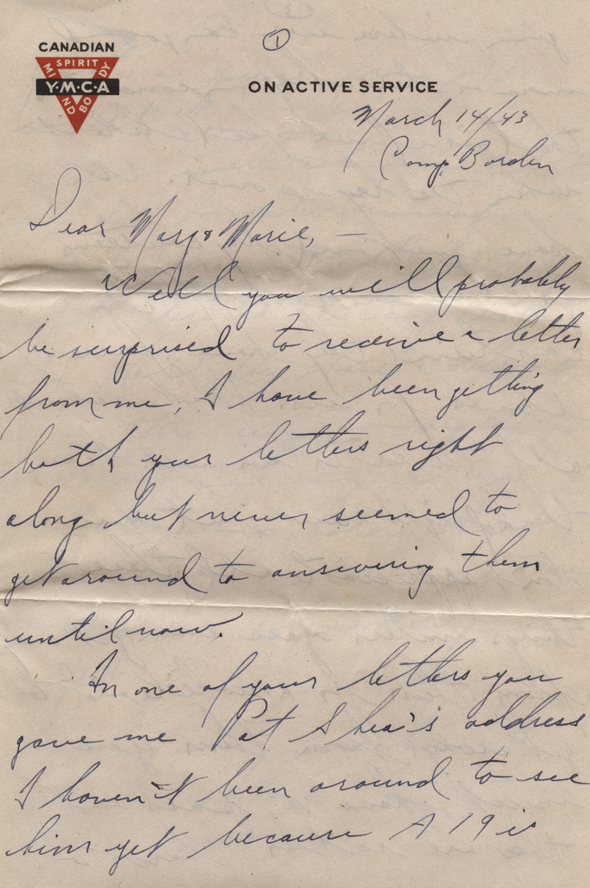 ①
CANADIAN
SPIRIT
MIND BODY
Y·M·C·A
ON ACTIVE SERVICE
March 14/43
Camp Borden
Dear Mary & Marie, —
Well you will probably
be surprised to receive a letter
from me, I have been getting
both your letters right
along but never seemed to
get around to answering them
until now.
In one of your letters you
gave me Pat Shea's address
I haven't been around to see
him yet because A 19 is